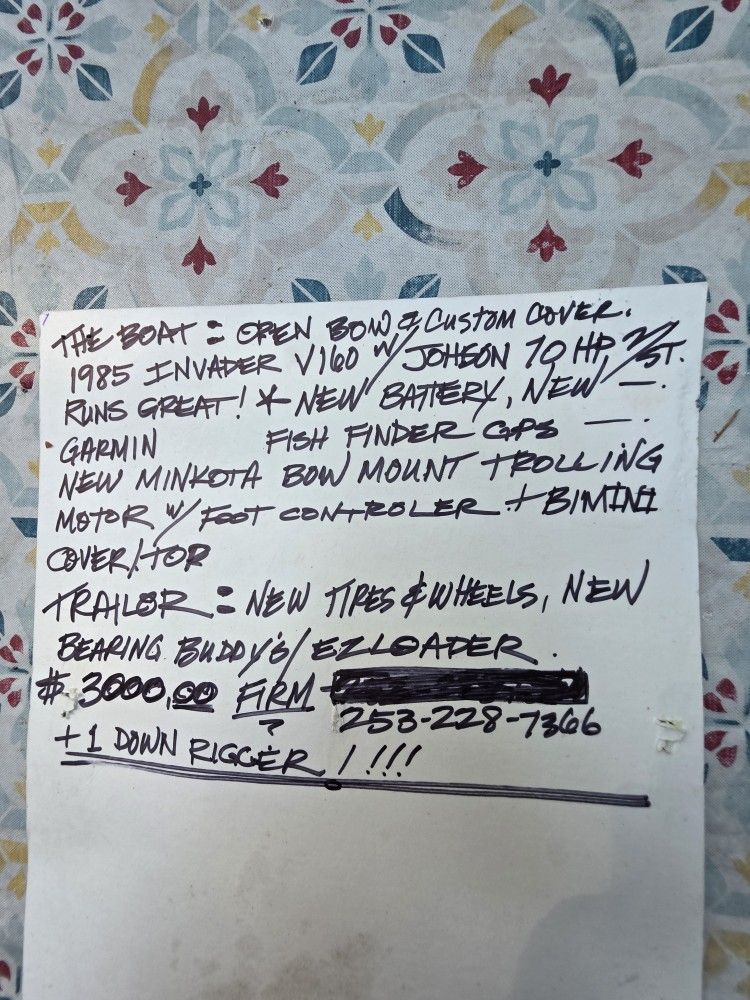 THE BOAT = OPEN BOW & CUSTOM COVER.
1985 INVADER V160 W/ JOHSON 70 HP 2/ST.
RUNS GREAT! * NEW BATTERY, NEW —.
GARMIN FISH FINDER GPS — .
NEW MINKOTA BOW MOUNT TROLLING
MOTOR W/ FOOT CONTROLER + BIMINI
COVER/TOP
TRAILOR = NEW TIRES & WHEELS, NEW
BEARING BUDDY'S/ EZLOADER.
$ 3000,00 FIRM -
253-228-7366
+ 1 DOWN RIGGER / !!!!